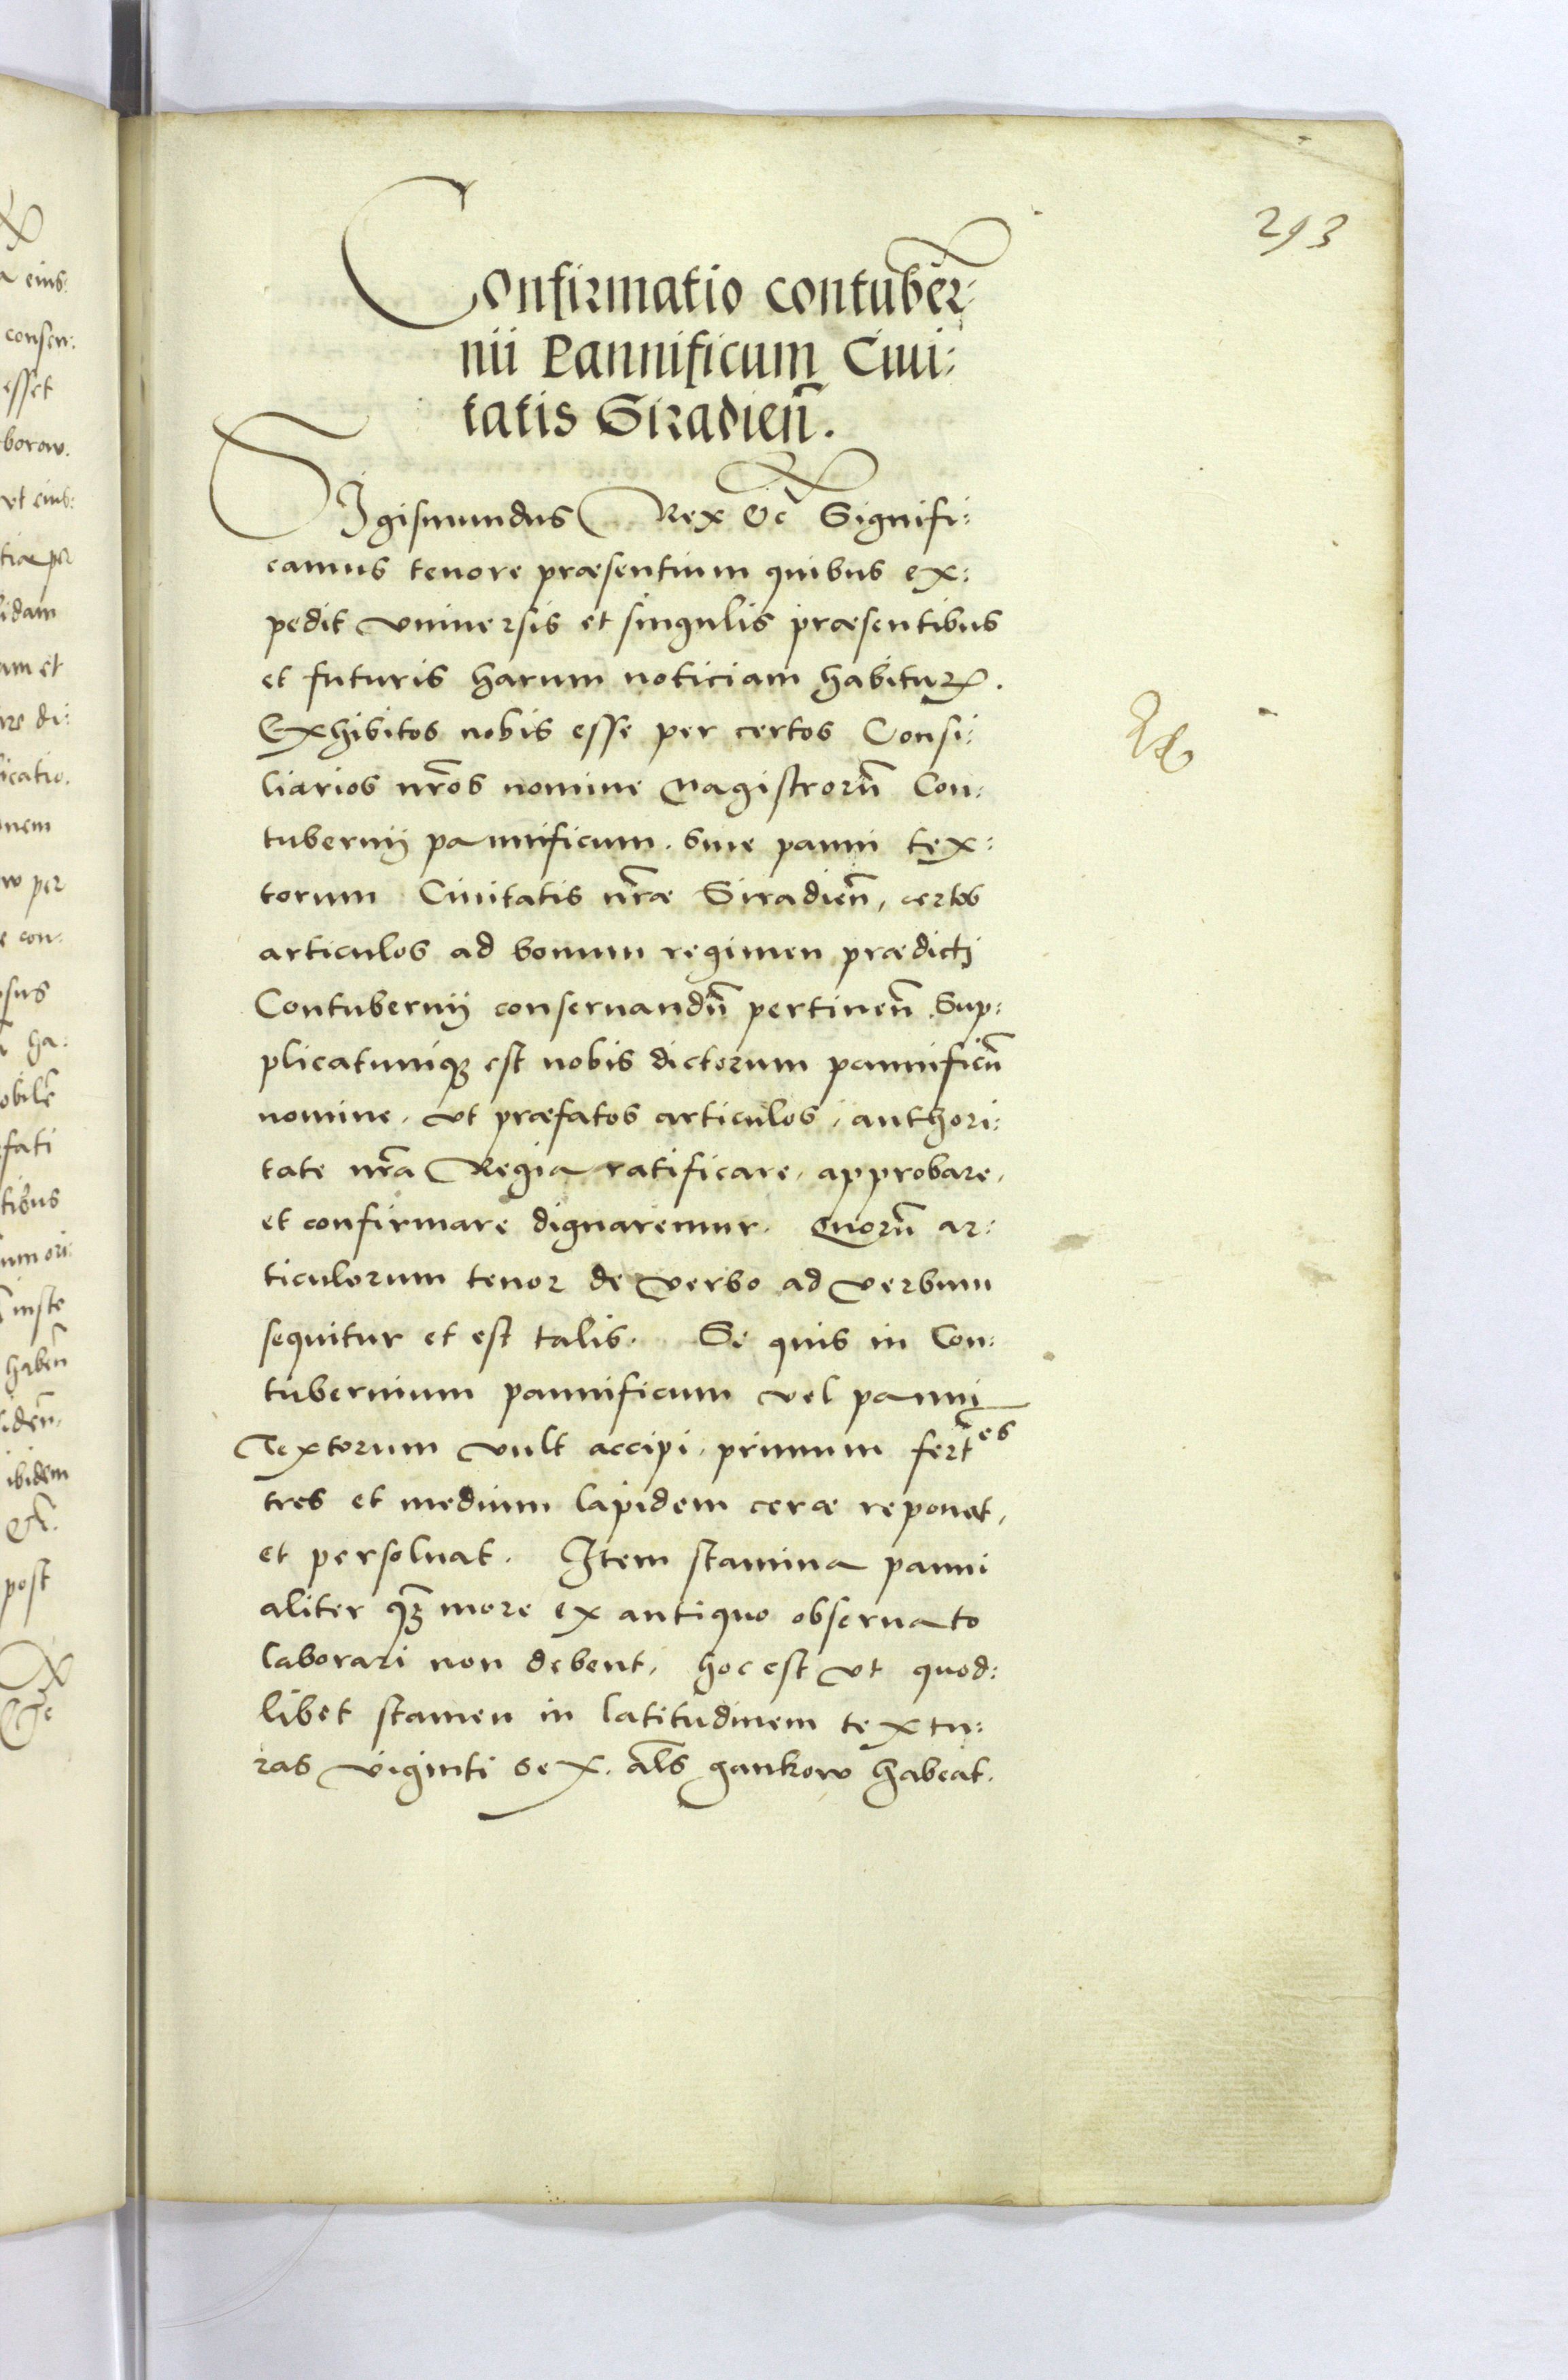 293
Confirmatio contuber:
nii Pannificum Ciui:
tatis Siradieñ.
Sigismundus Rex &c̃ Signifi:
camus tenore præsentium quibus ex:
pedit vniuersis et singulis præsentibus
et futuris harum noticiam habiturꝝ.
Exhibitos nobis esse per certos Consi:
liarios nr̃os nomine Magistrorũ Con:
tubernij pannificum. siue panni tex:
torum Ciuitatis nr̃æ Siradieñ, certos
articulos ad bonum regimen prædicti
Contubernij conseruandũ pertineñ. Sup:
plicatumqꝫ est nobis dictorum pannificũ
nomine. vt præfatos articulos, authori:
tate nr̃a Regia ratificare, approbare,
et confirmare dignaremur. Quorũ ar:
ticulorum tenor de verbo ad verbum
sequitur et est talis. Si quis in Con:
tubernium pannificum vel panni
Textorum vult accipi, primum fert̃es
tres et medium lapidem ceræ reponet,
et persoluat. Item stamina panni
aliter qꝫ̃ more ex antiquo obseruato
laborari non debent, hoc est vt quod:
libet stamen in latitudinem textu:
ras viginti sex. al̃s gankow habeat.